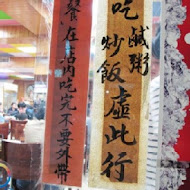 吃
鹹粥
炒飯
虛此行
餐在店內吃完不要外帶